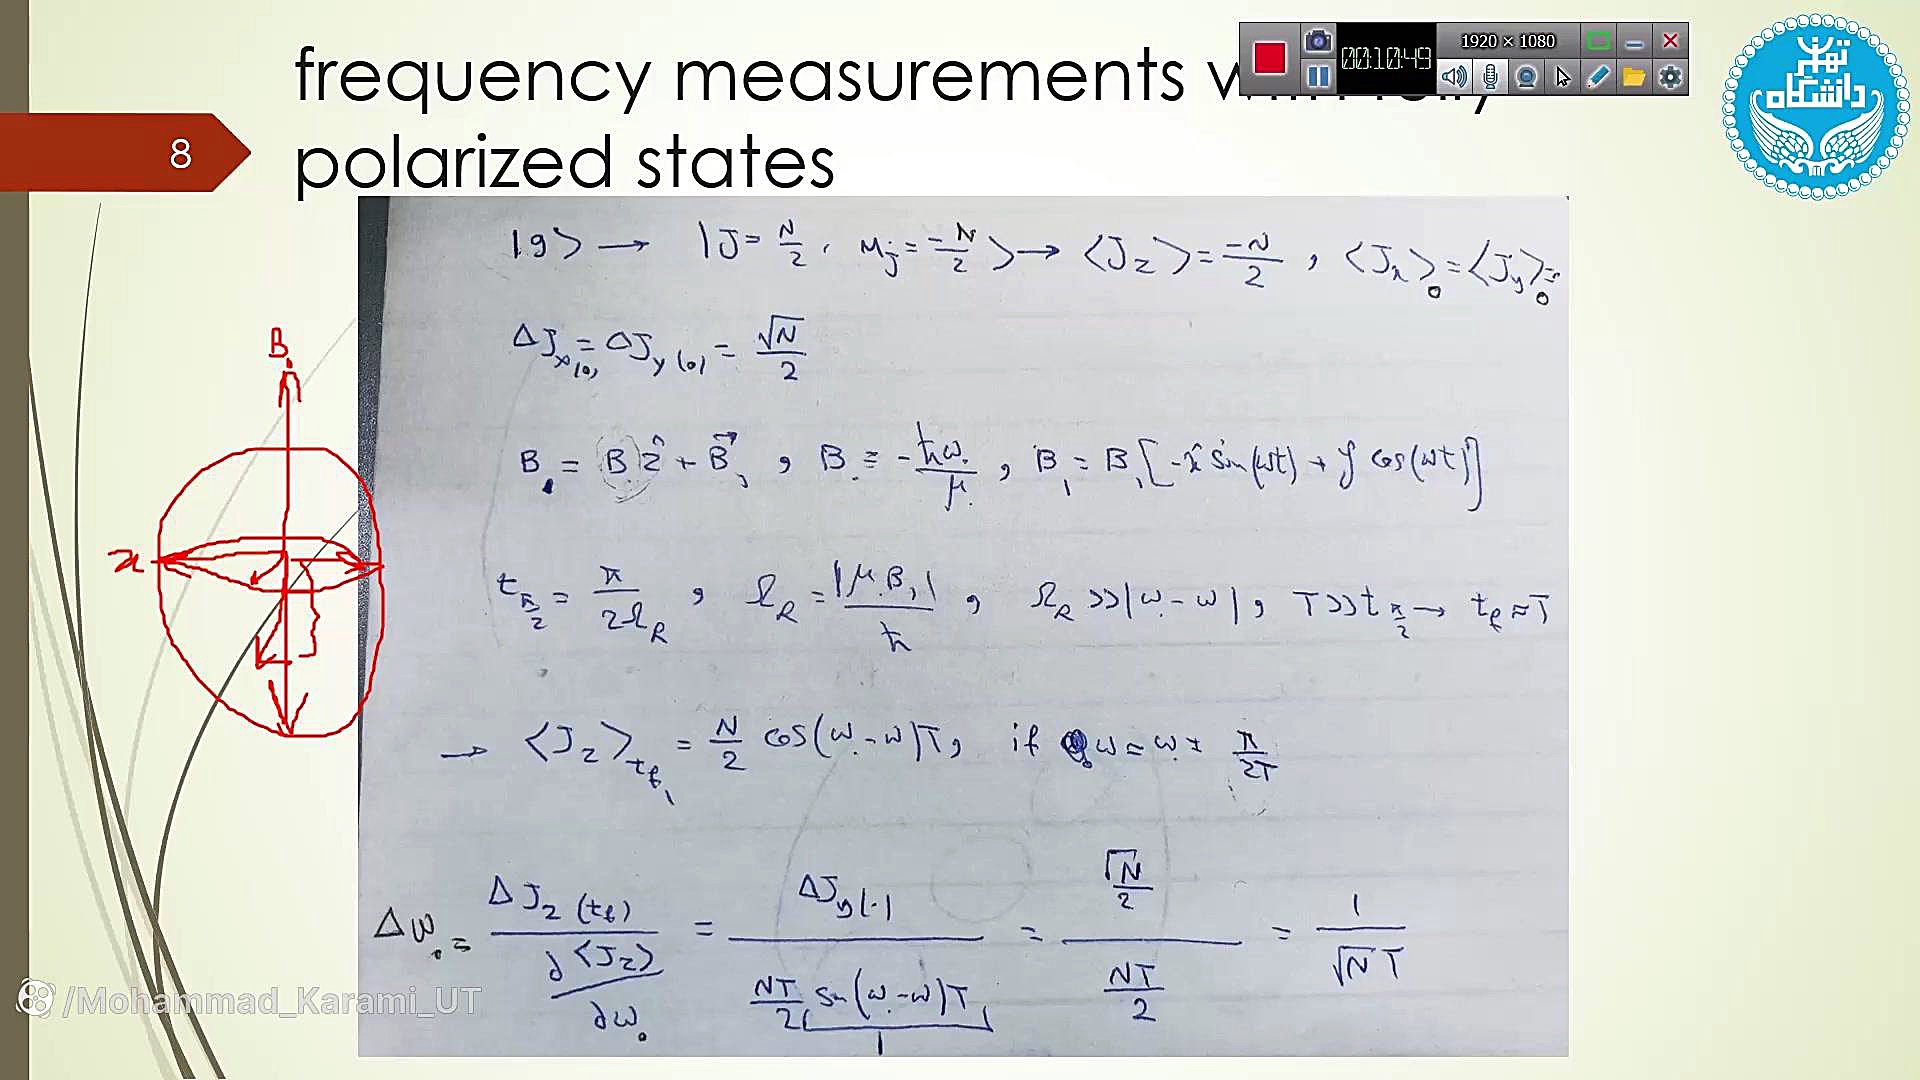 frequency measurements with fully
polarized states
8
00:10:49
1920 × 1080
تهران
دانشگاه
|g> → |J = N/2, M_j = -N/2> → <J_z> = -N/2, <J_x>_0 = <J_y>_0 =
ΔJ_x(0) = ΔJ_y(0) = √N/2
B. = B.ẑ + B⃗₁, B. ≡ -ħω./μ, B₁ = B₁[-x̂ sin(ωt) + ŷ cos(ωt)]
t_π/2 = π/2Ω_R, Ω_R = |μB₁|/ħ, Ω_R >> |ω. - ω|, T >> t_π/2 → t_f ≈ T
→ <J_z>_t_f = N/2 cos(ω. - ω)T, if ω = ω. ± π/2T
Δω. = ΔJ_z(t_f) / (∂<J_z>/∂ω.) = ΔJ_y(.) / (NT/2 sin(ω. - ω)T) = (√N/2) / (NT/2) = 1/√N T
1
B.
x
/Mohammad_Karami_UT